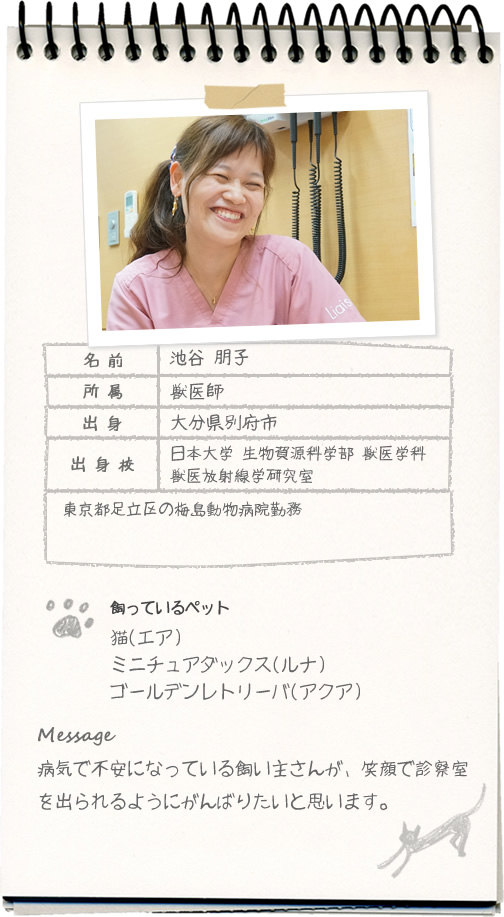 Liais
名前 池谷 朋子
所属 獣医師
出身 大分県別府市
出身校 日本大学 生物資源科学部 獣医学科
獣医放射線学研究室
東京都足立区の梅島動物病院勤務
飼っているペット
猫(エア)
ミニチュアダックス(ルナ)
ゴールデンレトリーバ(アクア)
Message
病気で不安になっている飼い主さんが、笑顔で診察室
を出られるようにがんばりたいと思います。